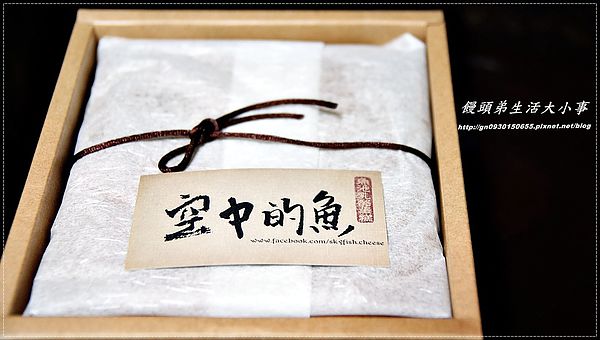 饅頭弟生活大小事
http://gn0930150655.pixnet.net/blog
空中的魚
www.facebook.com/skyfish.cheese